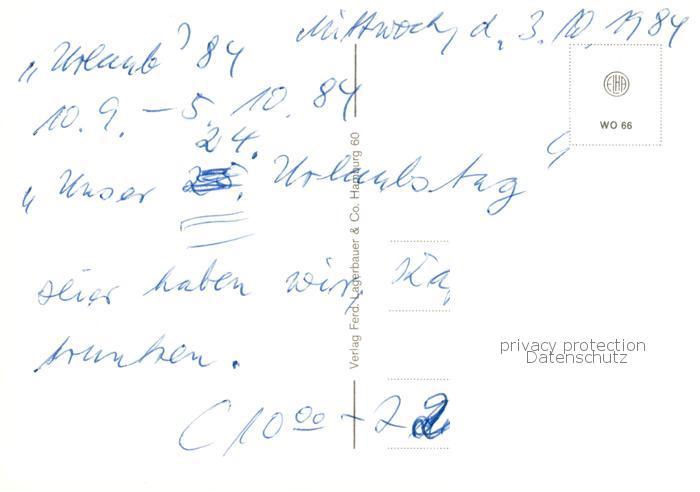 Mittwoch, d. 3.10.1984
„Urlaub“ 84
10.9. – 5.10.84
24.
„Unser Urlaubstag“
Hier haben wir Ka
trunken.
(10⁰⁰ – 22
EIHA
WO 66
Verlag Ferd. Lagerbauer & Co. Hamburg 60
privacy protection
Datenschutz